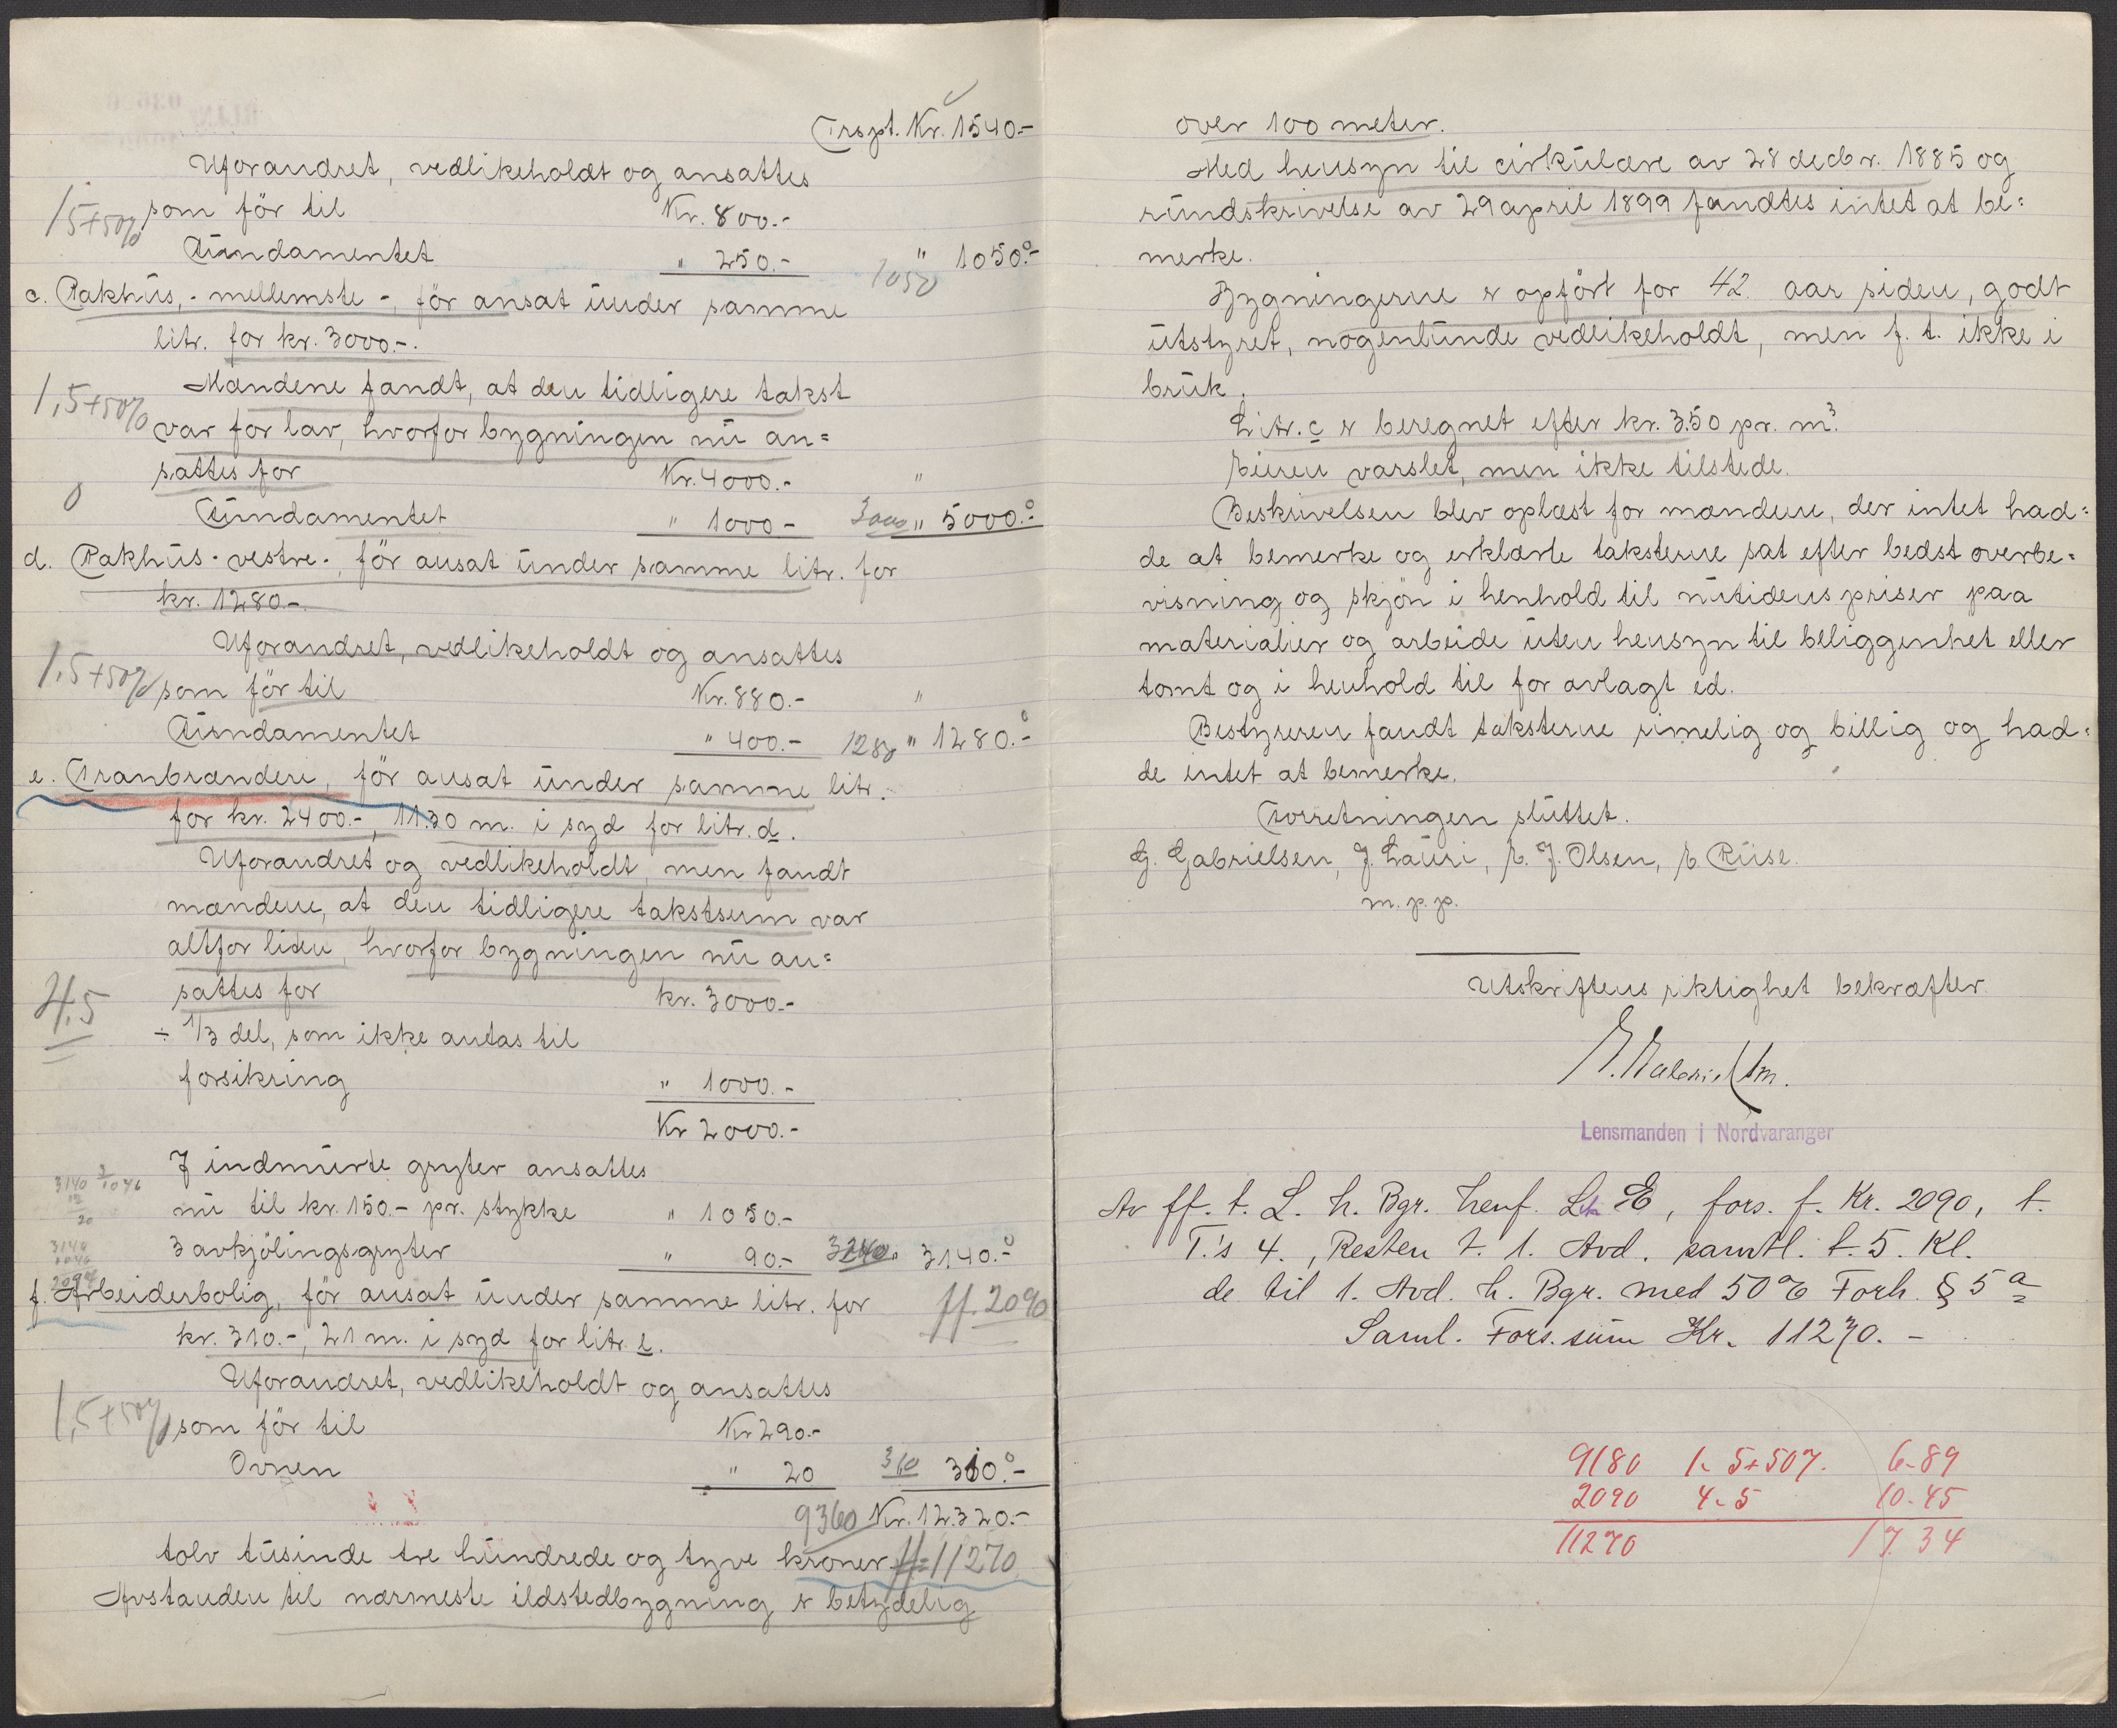 Trspt. Kr. 1540.-
Uforandret, vedlikeholdt og ansattes
1,5+50% som för til Kr. 800.-
Fundamentet " 250.- 1050 " 1050.-
c. Pakhus, - mellemste -, för ansat under samme
litr. for kr. 3000.-.
Mændene fandt, at den tidligere takst
1,5+50% var for lav, hvorfor bygningen nu an=
sattes for Kr. 4000.- "
0 Fundamentet " 1000 - 3000 " 5000.-
d. Pakhus - vestre -, för ansat under samme litr. for
kr. 1280.-.
Uforandret, vedlikeholdt og ansattes
1,5+50% som för til Kr. 880.- "
Fundamentet " 400.- 1280 " 1280.-
e. Tranbrænderi, för ansat under samme litr.
for kr. 2400.-, 11.30 m. i syd for litr. d.
Uforandret og vedlikeholdt, men fandt
mændene, at den tidligere takstsum var
altfor liden, hvorfor bygningen nu an=
sattes for kr. 3000.-
4,5
÷ 1/3 del, som ikke antas til
forsikring " 1000.-
Kr 2000.-
7 indmurte gryter ansattes
3140 1046
nu til kr. 150.- pr. stykke " 1050.-
3 avkjölingsgryter " 90.- 3140 " 3140.-
3140
1046
2094
f. Arbeiderbolig, för ansat under samme litr. for ff. 2090
kr. 310.-, 21 m. i syd for litr. e.
Uforandret, vedlikeholdt og ansattes
1,5+50% som för til Kr 290.-
Ovnen " 20 310 310.-
9360 Kr. 12.320.-
tolv tusinde tre hundrede og tyve kroner. ff=11270
Avstanden til nærmeste ildstedbygning er betydelig
over 100 meter.
Med hensyn til cirkulære av 28 decbr. 1885 og
rundskrivelse av 29 april 1899 fandtes intet at be=
merke.
Bygningerne er opfört for 42 aar siden, godt
utstyret, nogenlunde vedlikeholdt, men f. t. ikke i
bruk.
Litr. c er beregnet efter kr. 3.50 pr. m³.
Eieren varslet, men ikke tilstede.
Beskrivelsen blev oplæst for mændene, der intet had=
de at bemerke og erklærte taksterne sat efter bedst overbe=
visning og skjön i henhold til nutidens priser paa
materialier og arbeide uten hensyn til beliggenhet eller
tomt og i henhold til for avlagt ed.
Bestyreren fandt taksterne rimelig og billig og had=
de intet at bemerke.
Forretningen sluttet.
G. Gabrielsen, J. Lauri, E. J. Olsen, E. Ruse.
m. p. p.
Utskriftens riktighet bekræfter
Lensmanden i Nordvaranger
Av ff. t. L. h. Bgr. henf. Ltr E, fors. f. Kr. 2090, t.
T.'s 4., Resten t. 1. Avd. samtl. t. 5. Kl.
de til 1. Avd. h. Bgr. med 50% Forh. § 5 a
Saml. Fors. sum Kr. 11270.-
9180 1,5+50% 6-89
2090 4,5 10-45
11270 17.34